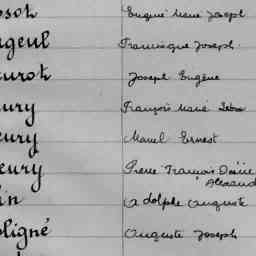 osot Eugène Marie Joseph
ngeul Francisque Joseph.
urot Joseph Eugène
ury François Marie
eury Marcel Ernest
eury Pierre François Désiré
Alexand
in Adolphe Auguste
oligné Auguste Joseph